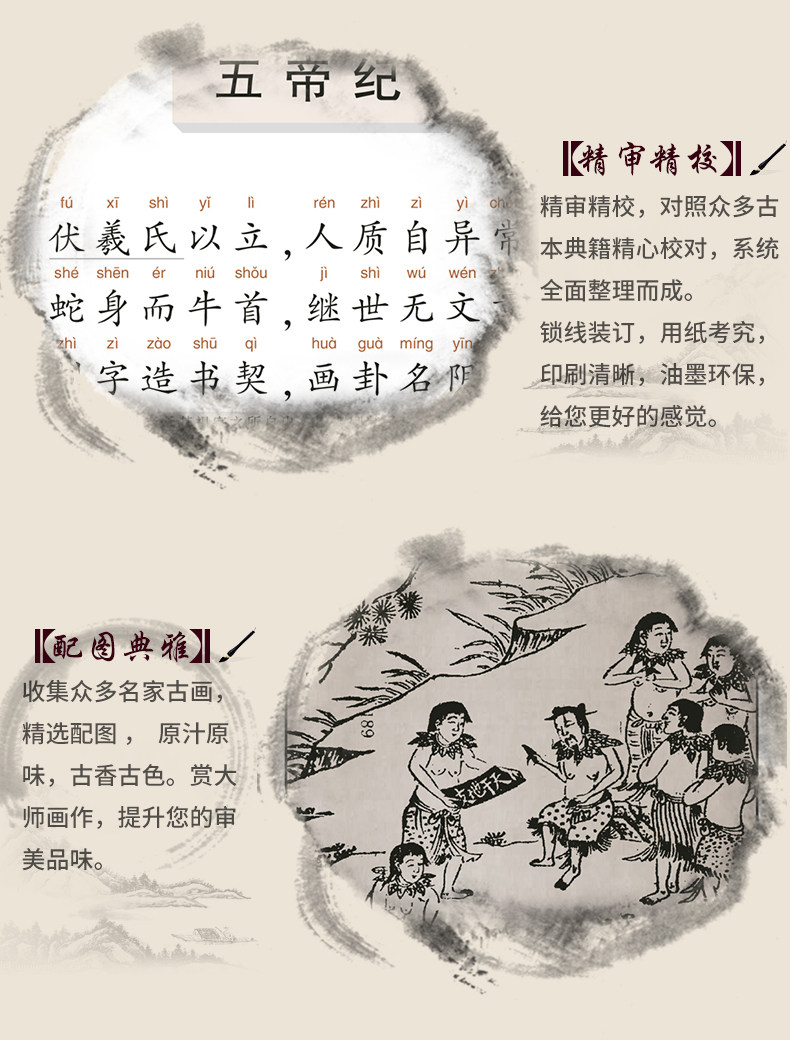 五帝纪
fú xī shì yǐ lì rén zhì zì yì
伏羲氏以立，人质自异常
shé shēn ér niú shǒu jì shì wú wén
蛇身而牛首，继世无文
zhì zì zào shū qì huà guà míng yīn
字造书契，画卦名阴
【精审精校】
精审精校，对照众多古
本典籍精心校对，系统
全面整理而成。
锁线装订，用纸考究，
印刷清晰，油墨环保，
给您更好的感觉。
【配图典雅】
收集众多名家古画，
精选配图， 原汁原
味，古香古色。赏大
师画作，提升您的审
美品味。
89